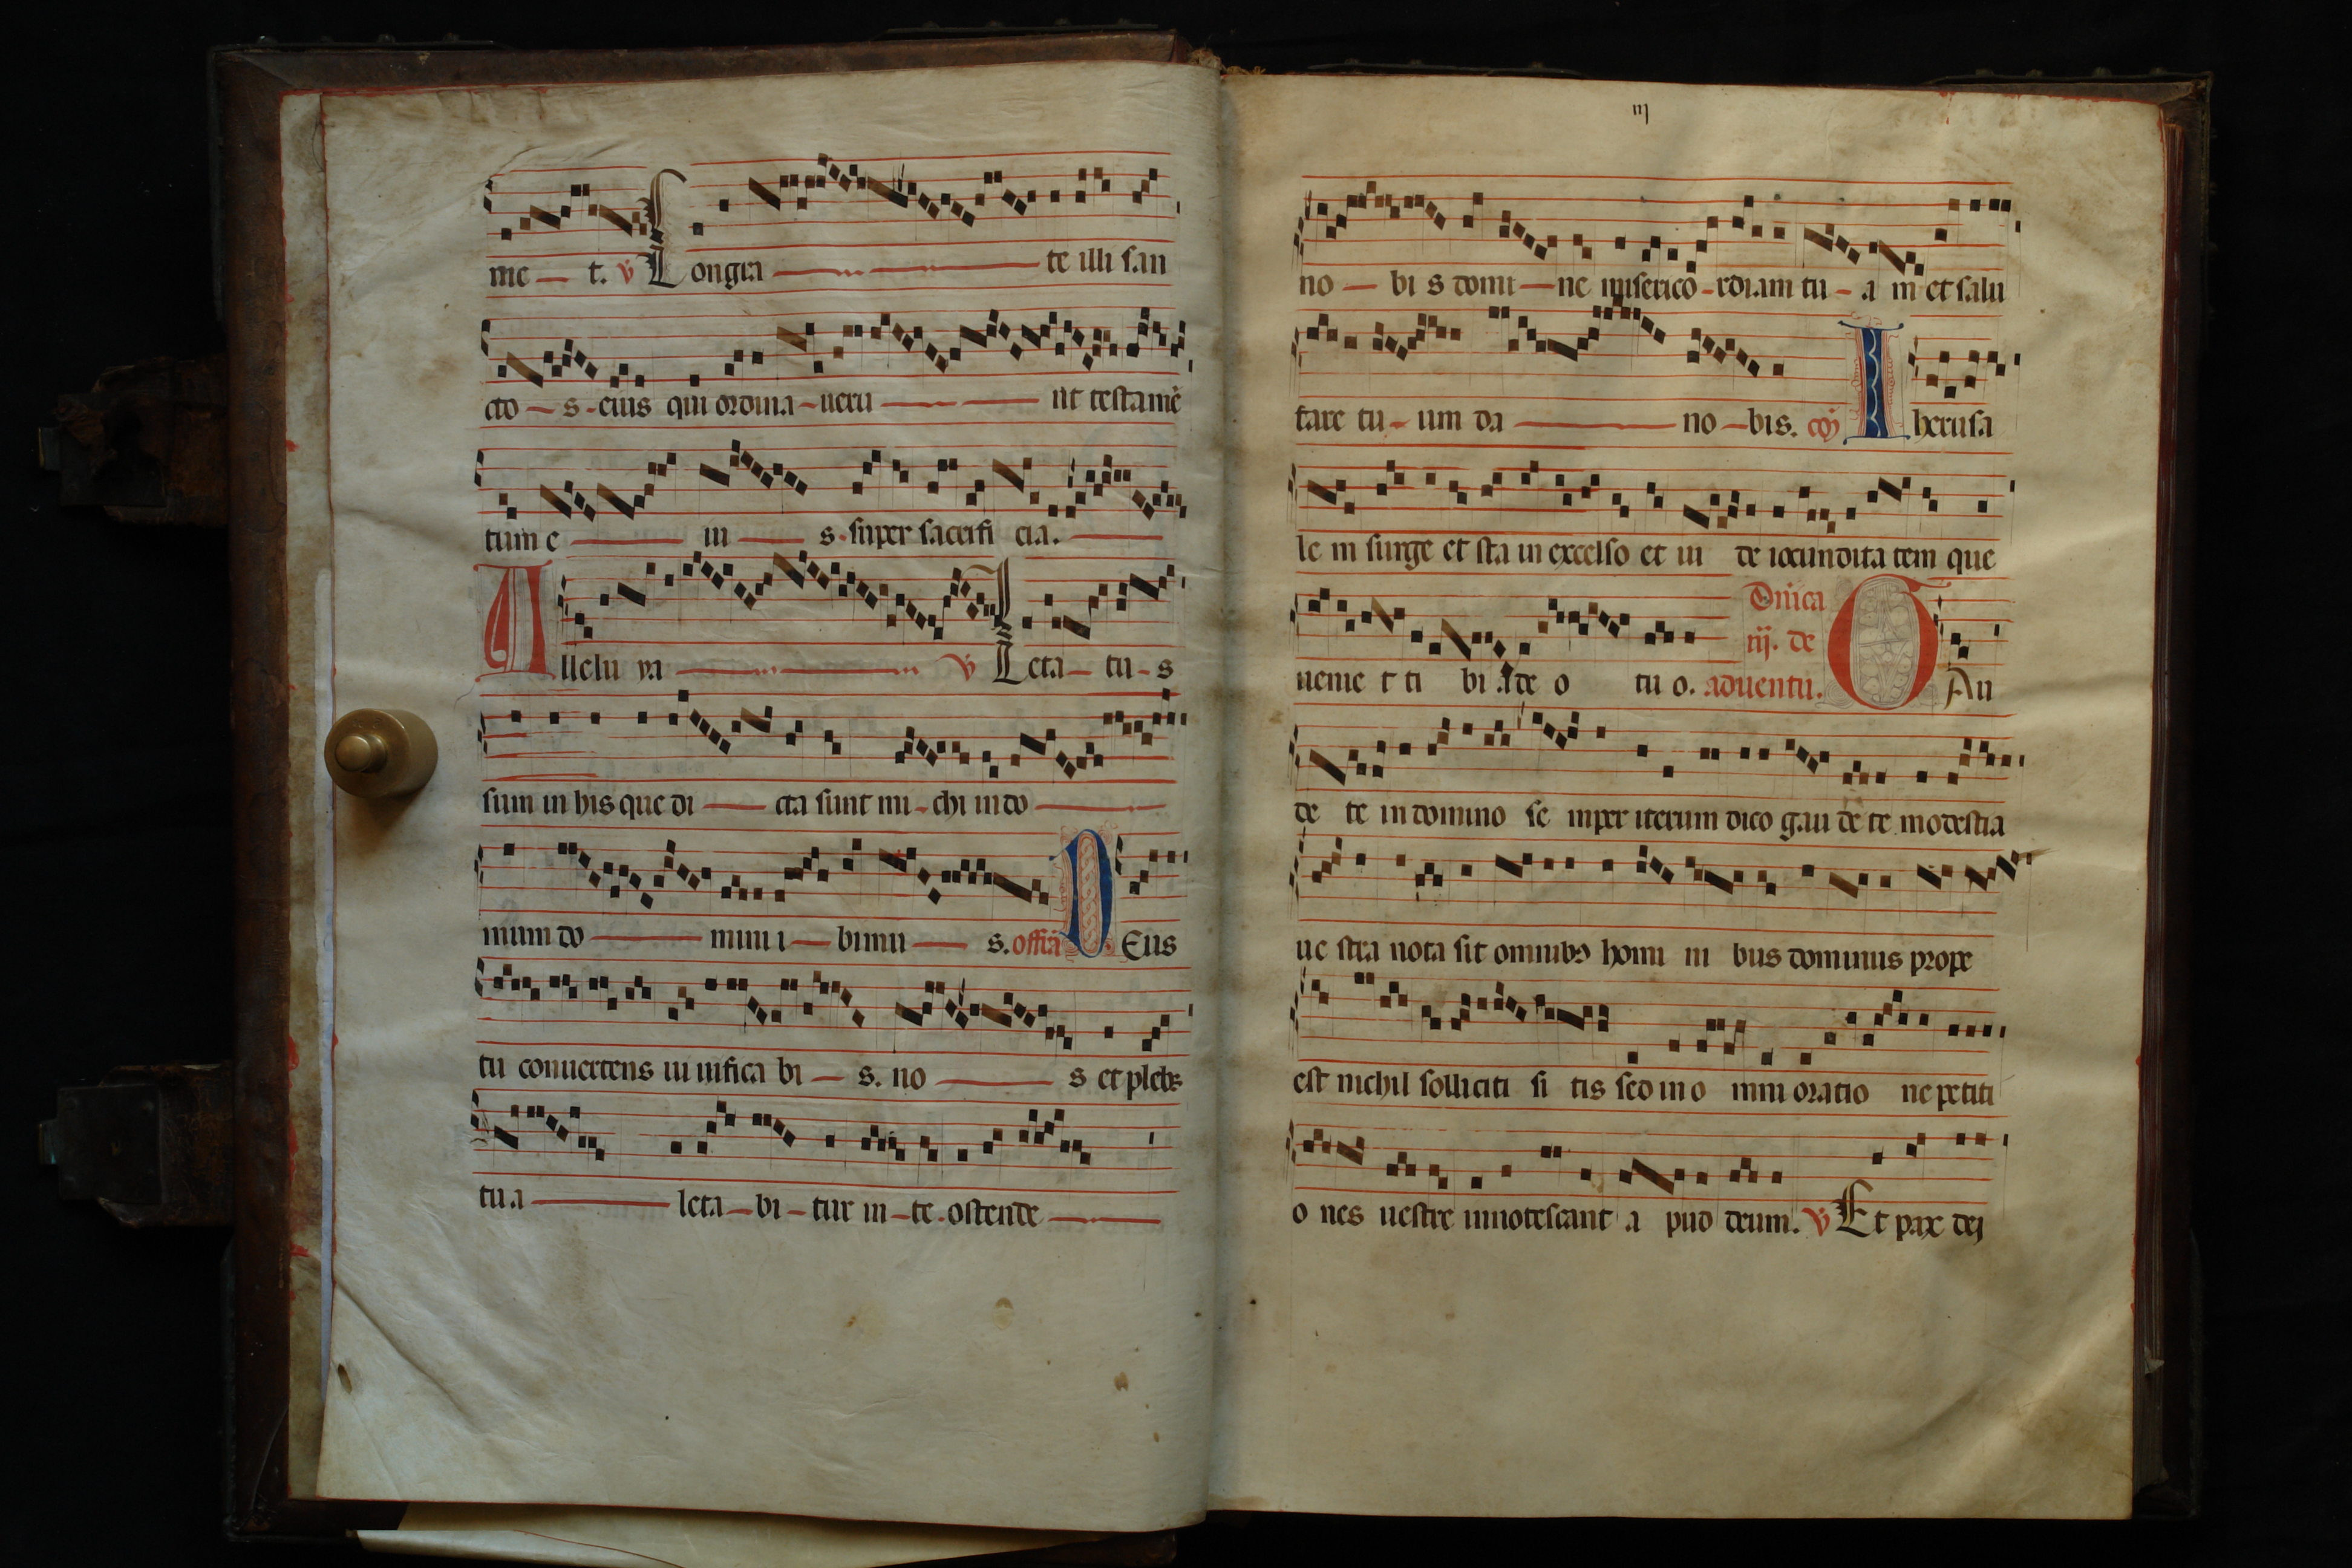 me — t. ℣ Longrega — — te illi san
cto — s - eius qui ordina - ueru — — nt testamē
tum e — iu — s. super sacrifi cia. —
Allelu ya — — ℣ Leta — tu - s
sum in his que di — cta sunt mi - chi in do —
mum do — mini i — bimu — s. offiā DEus
tu conuertens ui uifica bi — s. no — s et plebs
tu a — leta — bi - tur in - te. ostende —
iij
no — bi s domi — ne miserico - rdiam tu - a m et salu
tare tu - um da — no - bis. cō Iherusa
le m surge et sta in excelso et ui de iocundita tem que
Dnica
uenie t ti bi a de o tu o. iij. de aduentu. GAu
de te in domino se mper iterum dico gau de te modestia
ue stra nota sit omnibꝫ homi ni bus dominus prope
est nichil solliciti si tis sed in o mni oratio ne petiti
o nes uestre innotescant a pud deum. ℣ Et pax dei